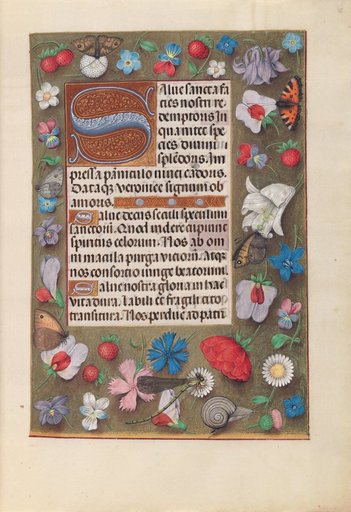 Salve sancta fa
cies nostri re
demptoris In
qua nitet spe
cies divini
splēdoris. Im
pressa pāniculo nivei cādoris.
Dataq; veronice signum ob
amoris.
Salve decus seculi speculum
sanctorū. Quod videre cupiunt
spiritus celorum. Nos ab om
ni macula purga viciorū. Atq;
nos consortio iunge beatorum
Salve nostra gloria in hac
vita dura. labili et fragili cito
transitura. Nos perduc ad patri